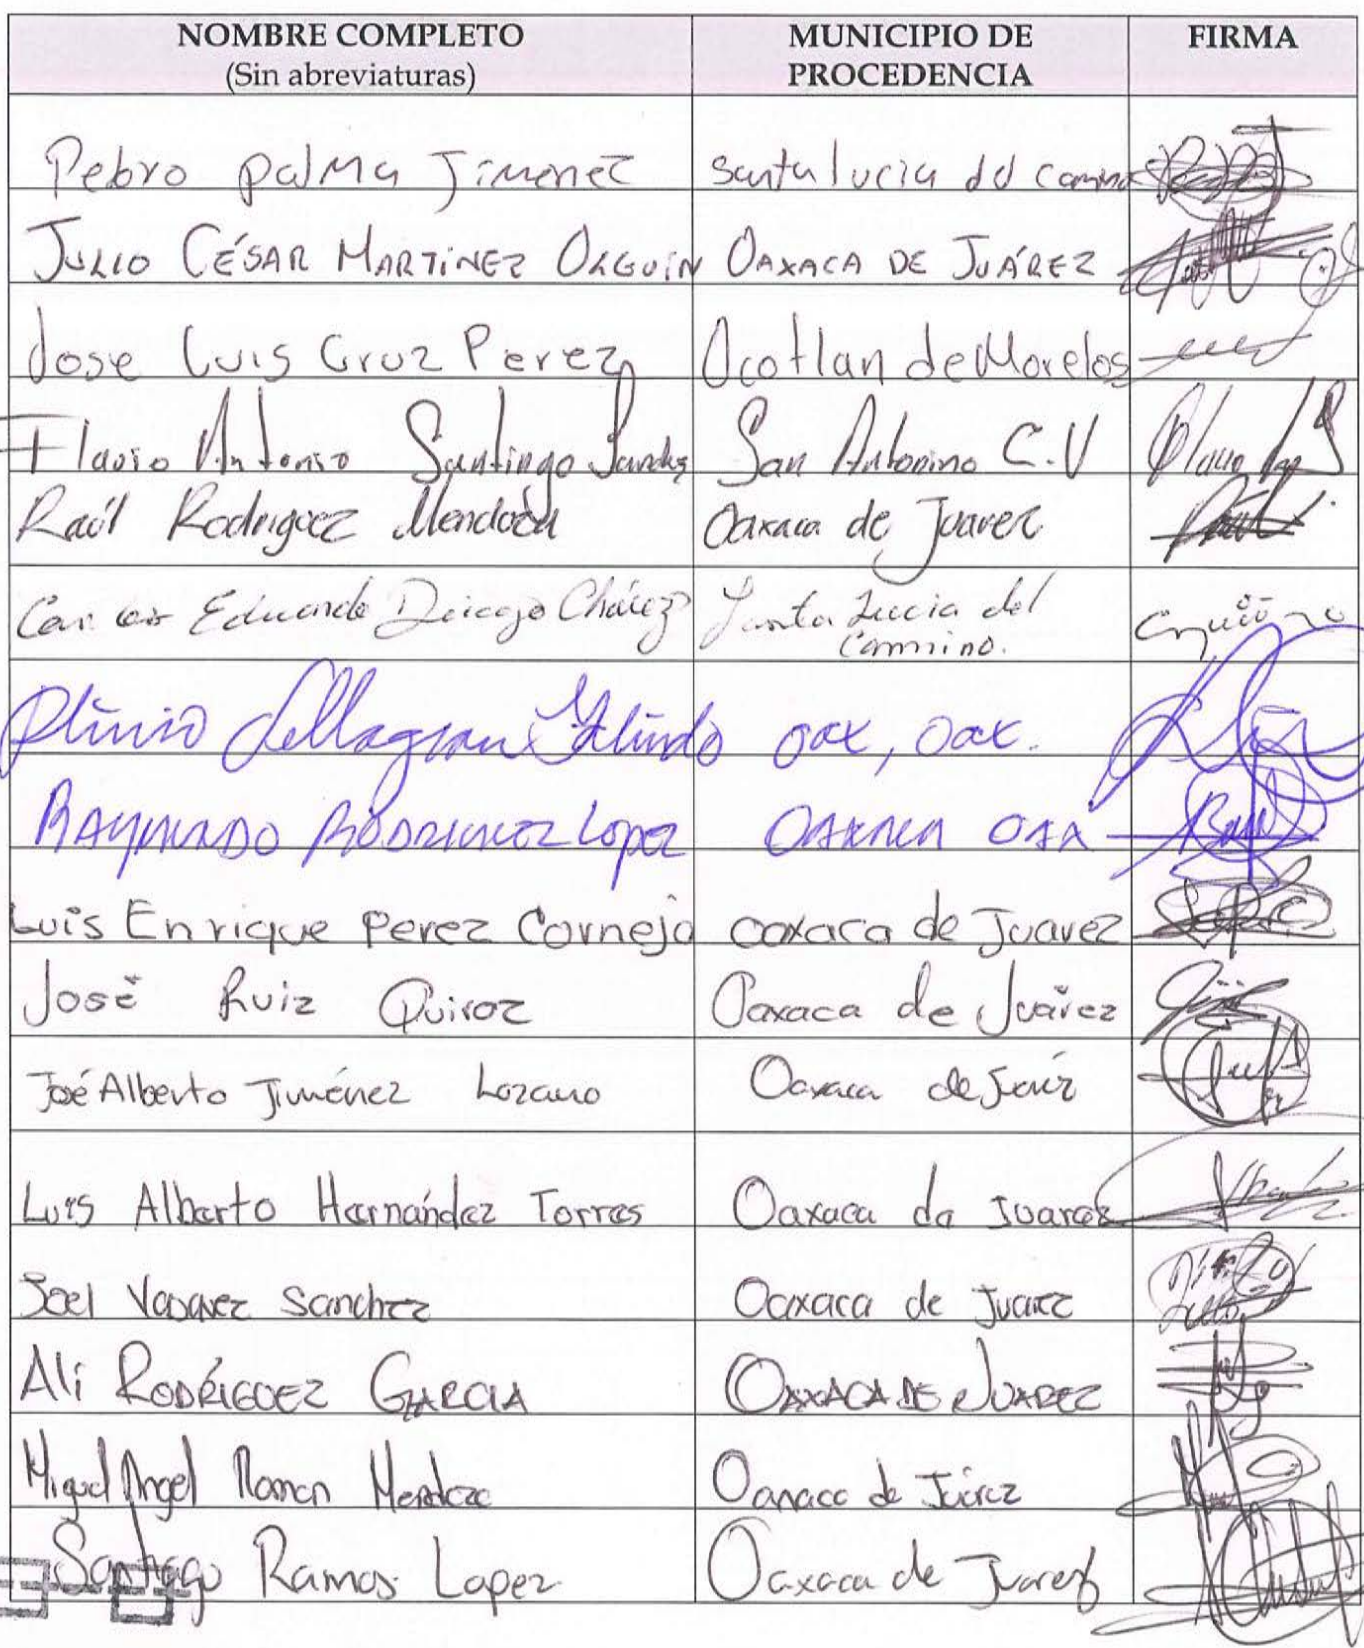 NOMBRE COMPLETO
(Sin abreviaturas)
MUNICIPIO DE
PROCEDENCIA
FIRMA
Pebro palma Jimenez Santa lucia del Camino
JULIO CÉSAR MARTÍNEZ OLGUÍN OAXACA DE JUÁREZ
Jose Luis Cruz Perez Ocotlan de Morelos
Flavio Antonio Santiago San Antonino C.V
Raúl Rodriguez Mendoza Oaxaca de Juarez
Carlos Eduardo Chávez Santa Lucia del
Camino.
Plinio oax, oax.
RAYMUNDO RODRIGUEZ LOPEZ OAXACA OAX
Luis Enrique Perez Cornejo oaxaca de Juarez
José Ruiz Quiroz Oaxaca de Juárez
José Alberto Jiménez Lozano Oaxaca de
Luis Alberto Hernández Torres Oaxaca de Juarez
Joel Vasquez Sanchez Oaxaca de Juarez
Ali RODRÍGUEZ GARCIA OAXACA DE JUAREZ
Miguel Angel Ramon Mendoza Oaxaca de Juárez
Santiago Ramos Lopez Oaxaca de Juarez